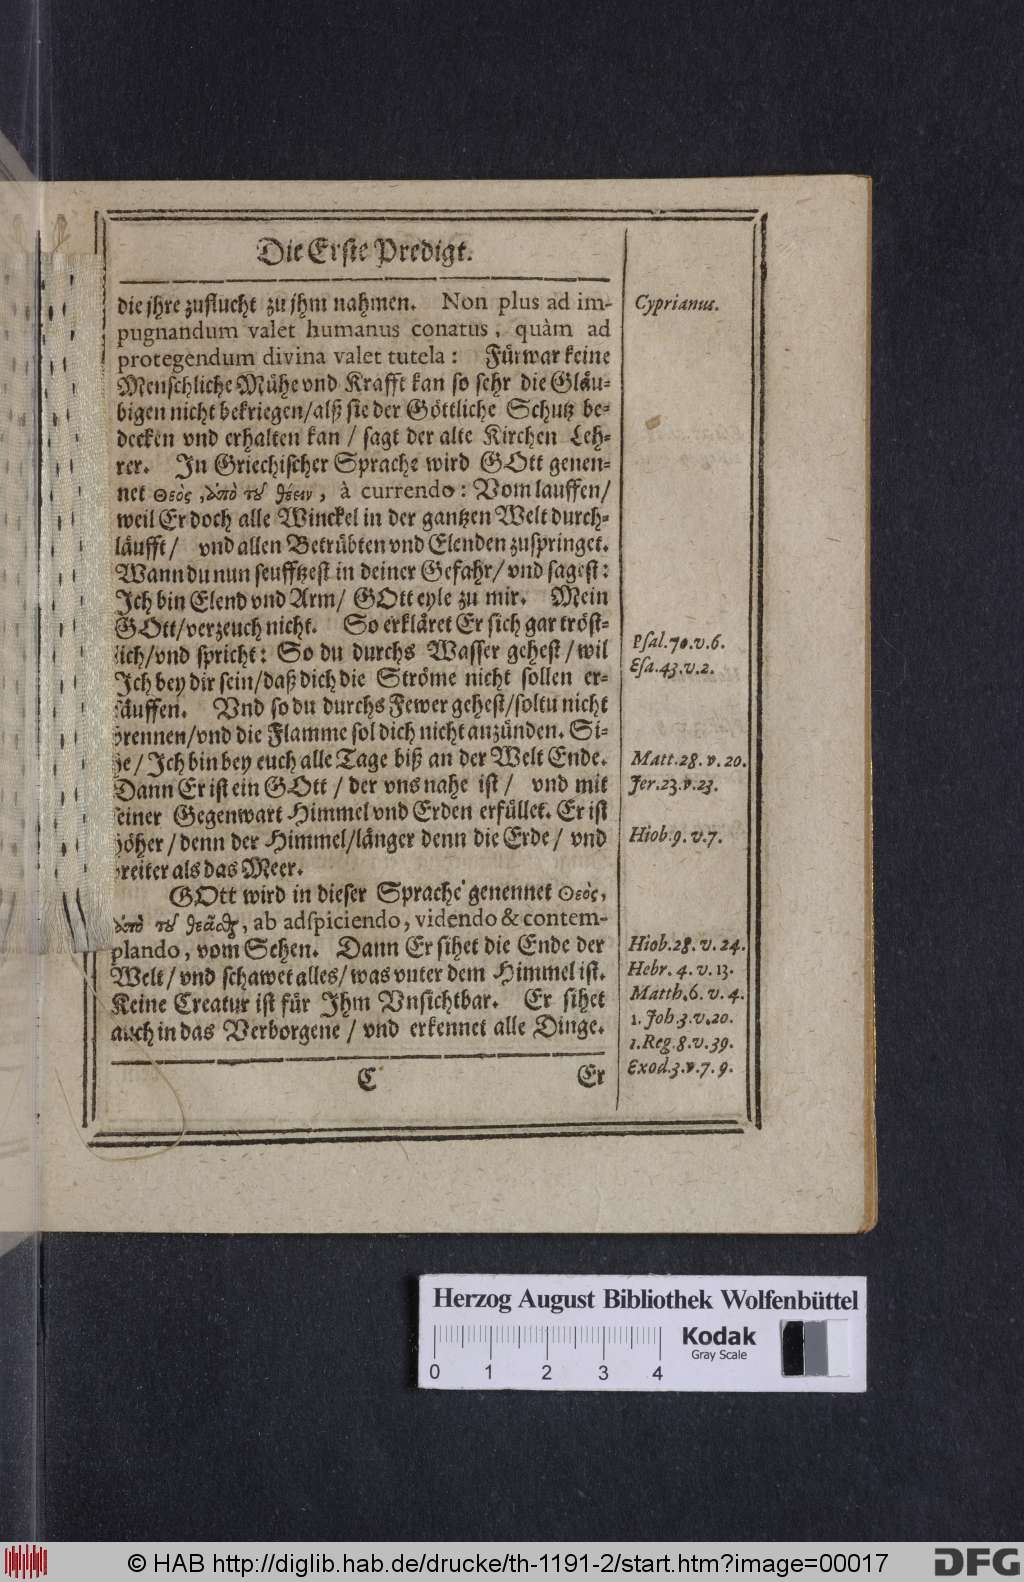 Die Erste Predigt.
die jhre zuflucht zu jhm nahmen. Non plus ad im-
pugnandum valet humanus conatus, quàm ad
protegendum divina valet tutela: Fürwar keine
Menschliche Mühe vnd Krafft kan so sehr die Gläu-
bigen nicht bekriegen/alß sie der Göttliche Schutz be-
decken vnd erhalten kan / sagt der alte Kirchen Leh-
rer. In Griechischer Sprache wird GOtt genen-
net Θεὸς, ἀπὸ τοῦ θέειν, à currendo: Vom lauffen/
weil Er doch alle Winckel in der gantzen Welt durch-
läufft/ vnd allen Betrübten vnd Elenden zuspringet.
Wann du nun seufftzest in deiner Gefahr/ vnd sagest:
Ich bin Elend vnd Arm/ GOtt eyle zu mir. Mein
GOtt/verzeuch nicht. So erkläret Er sich gar tröst-
lich/vnd spricht: So du durchs Wasser gehest/wil
Ich bey dir sein/daß dich die Ströme nicht sollen er-
säuffen. Vnd so du durchs Fewer gehest/soltu nicht
brennen/vnd die Flamme sol dich nicht anzünden. Si-
he/ Ich bin bey euch alle Tage biß an der Welt Ende.
Dann Er ist ein GOtt / der vns nahe ist/ vnd mit
seiner Gegenwart Himmel vnd Erden erfüllet. Er ist
höher/denn der Himmel/länger denn die Erde/ vnd
breiter als das Meer.
GOtt wird in dieser Sprache genennet Θεὸς,
ἀπὸ τοῦ θεᾶσθαι, ab adspiciendo, videndo & contem-
plando, vom Sehen. Dann Er sihet die Ende der
Welt/ vnd schawet alles/ was vnter dem Himmel ist.
Keine Creatur ist für Ihm Vnsichtbar. Er sihet
auch in das Verborgene / vnd erkennet alle Dinge.
C Er
Cyprianus.
Psal.70.v.6.
Esa.43.v.2.
Matt.28.v.20.
Jer.23.v.23.
Hiob.9.v.7.
Hiob.28.v.24.
Hebr.4.v.13.
Matth.6.v.4.
1.Joh.3.v.20.
1.Reg.8.v.39.
Exod.3.v.7.9.
Herzog August Bibliothek Wolfenbüttel
0 1 2 3 4
Kodak
Gray Scale
© HAB http://diglib.hab.de/drucke/th-1191-2/start.htm?image=00017
DFG